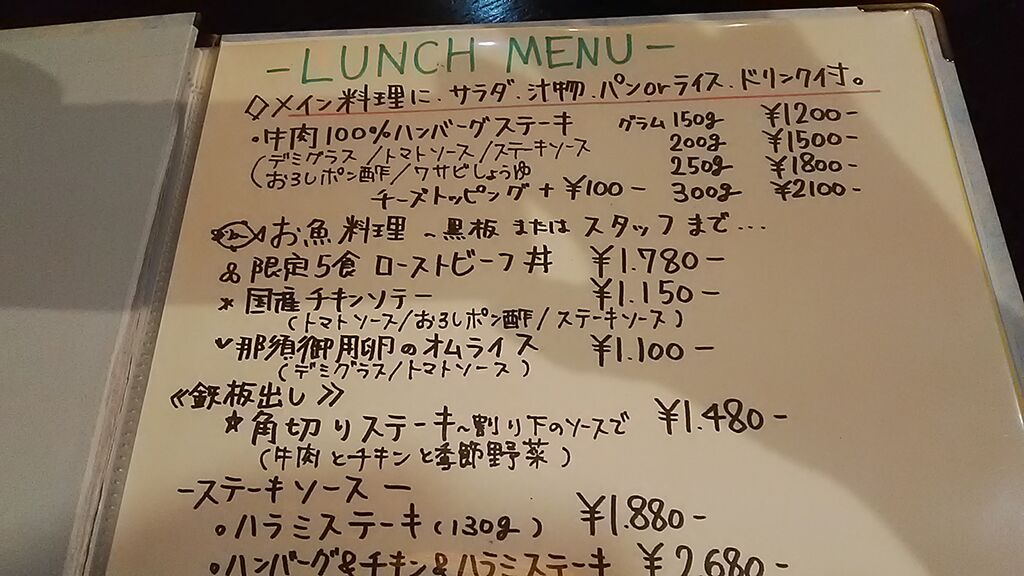 -LUNCH MENU-
◇メイン料理に、サラダ、汁物、パンorライス、ドリンク付。
・牛肉100%ハンバーグステーキ グラム 150g ¥1200-
(デミグラス/トマトソース/ステーキソース 200g ¥1500-
おろしポン酢/ワサビしょうゆ 250g ¥1800-
チーズトッピング+¥100- 300g ¥2100-
お魚料理 ~黒板またはスタッフまで…
限定5食 ローストビーフ丼 ¥1.780-
*国産チキンソテー ¥1.150-
(トマトソース/おろしポン酢/ステーキソース)
✓那須御用卵のオムライス ¥1.100-
(デミグラス/トマトソース)
《鉄板出し》
★角切りステーキ~割り下のソースで ¥1.480-
(牛肉とチキンと季節野菜)
-ステーキソース-
○ハラミステーキ(130g) ¥1.880-
○ハンバーグ&チキン&ハラミステーキ ¥2,680-